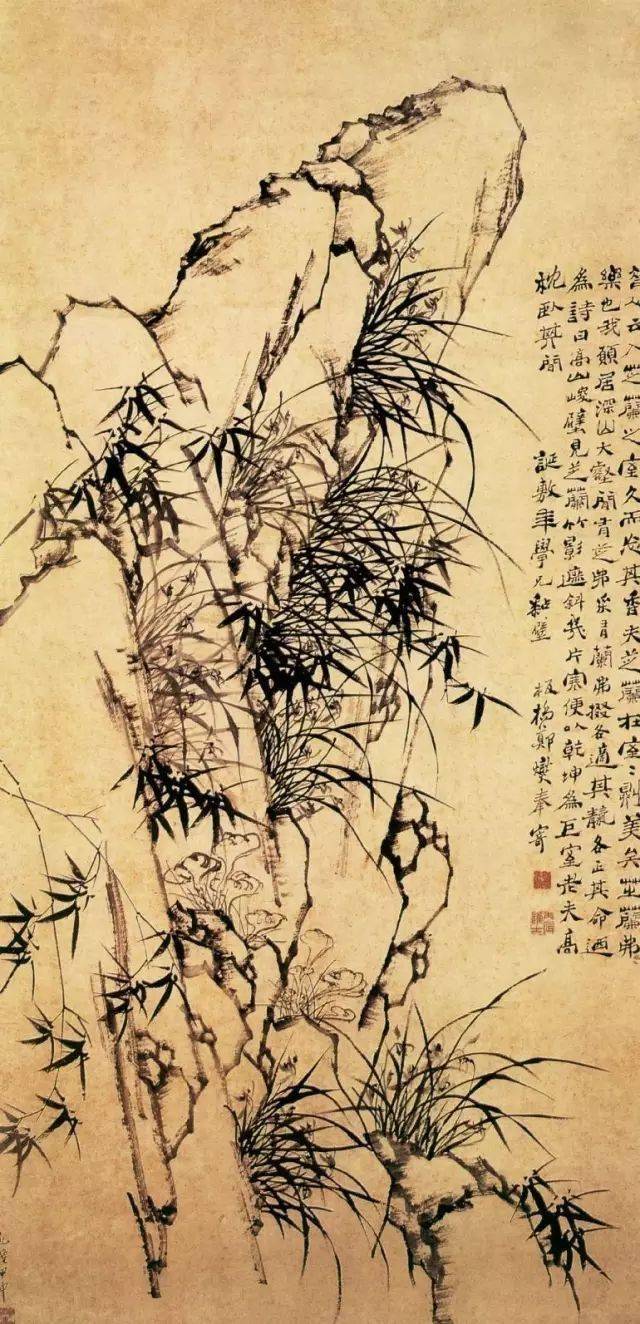 昔人云入芝蘭之室久而忘其香夫芝蘭在室〻則美矣芝蘭弗
樂也我願居深山大壑間有芝弗采有蘭弗掇各適其各正其命迺
為詩曰高山峻壁見芝蘭竹影遮斜幾片寒便以乾坤為巨室老夫高
枕臥其間
誕敷年學兄粘壁
板橋鄭燮奉寄